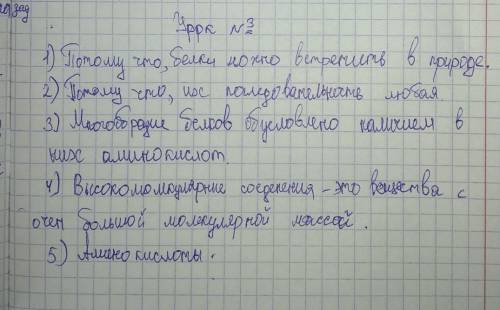 зад
Урок № 3
1) Потому что, белки можно встретисть в природе.
2) Потому что, иос последовательность любая
3) Многобордие белков обусловлено наличием в
них аминокислот.
4) Высокомомкулярние соеденения - это вещества с
очен большой молекулярной массой.
5) Амино кислоты.